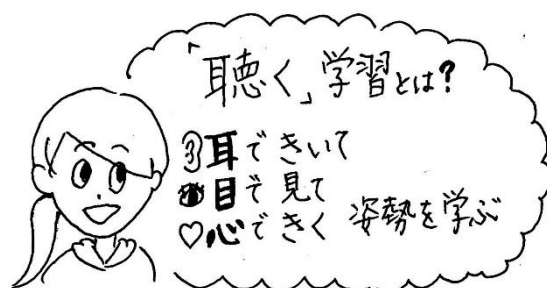 「聴く」学習とは?
耳できいて
目で見て
心できく 姿勢を学ぶ